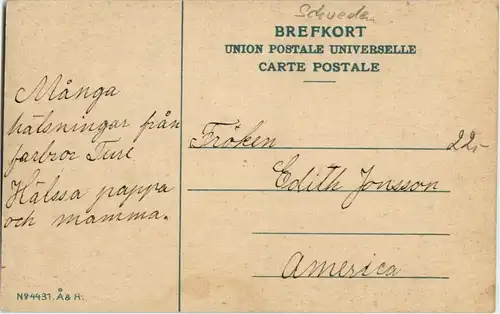 Schweden
BREFKORT
UNION POSTALE UNIVERSELLE
CARTE POSTALE
Många
hälsningar från
farbror Ture
Hälssa pappa
och mamma.
Fröken
22.-
Edith Jonsson
America
No 4431. Å & H.